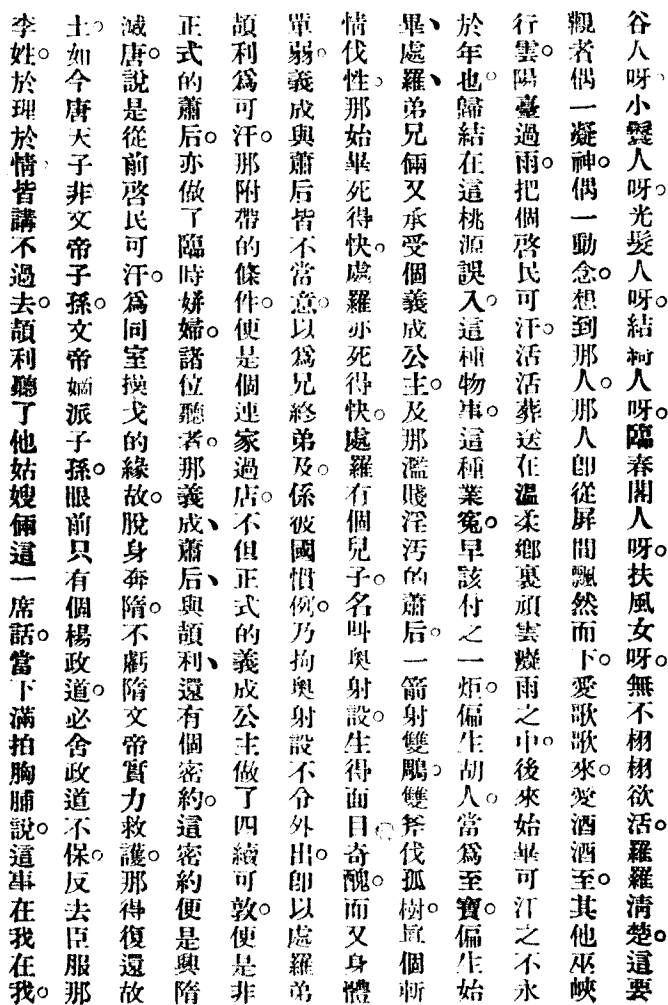 谷人呀小鬟人呀。光髮人呀。結綯人呀。臨春閣人呀。扶風女呀。無不栩栩欲活。羅羅清楚。這要
觀者偶一凝神。偶一動念。想到那人。那人卽從屏間飄然而下。愛歌歌來。愛酒酒至。其他巫峽
行雲。陽臺過雨。把個啓民可汗。活活葬送在溫柔鄉裏頑雲癡雨之中。後來始畢可汗之不永
於年也。歸結在這桃源誤入。這種物事。這種業寃。早該付之一炬。偏生胡人。當爲至寶。偏生始
畢、處羅、弟兄倆又承受個義成公主。及那濫賤淫汚的蕭后。一箭射雙鵰。雙斧伐孤樹。眞個斬
情伐性。那始畢死得快。處羅亦死得快。處羅有個兒子。名叫奧射設。生得面目奇醜。而又身體
單弱。義成與蕭后皆不當意。以爲兄終弟及。係彼國慣例。乃拘奧射設不令外出。卽以處羅弟
頡利爲可汗。那附帶的條件。便是個連家過店。不但正式的義成公主做了四續可敦。便是非
正式的蕭后。亦做了臨時姘婦。諸位聽者。那義成、蕭后、與頡利、還有個密約。這密約便是興隋
滅唐。說是從前啓民可汗。爲同室操戈的緣故。脫身奔隋。不虧隋文帝實力救護。那得復還故
土。如今唐天子非文帝子孫。文帝嫡派子孫。眼前只有個楊政道。必舍政道不保。反去臣服那
李姓。於理於情皆講不過去。頡利聽了他姑嫂倆這一席話。當下滿拍胸脯說。這事在我在我。